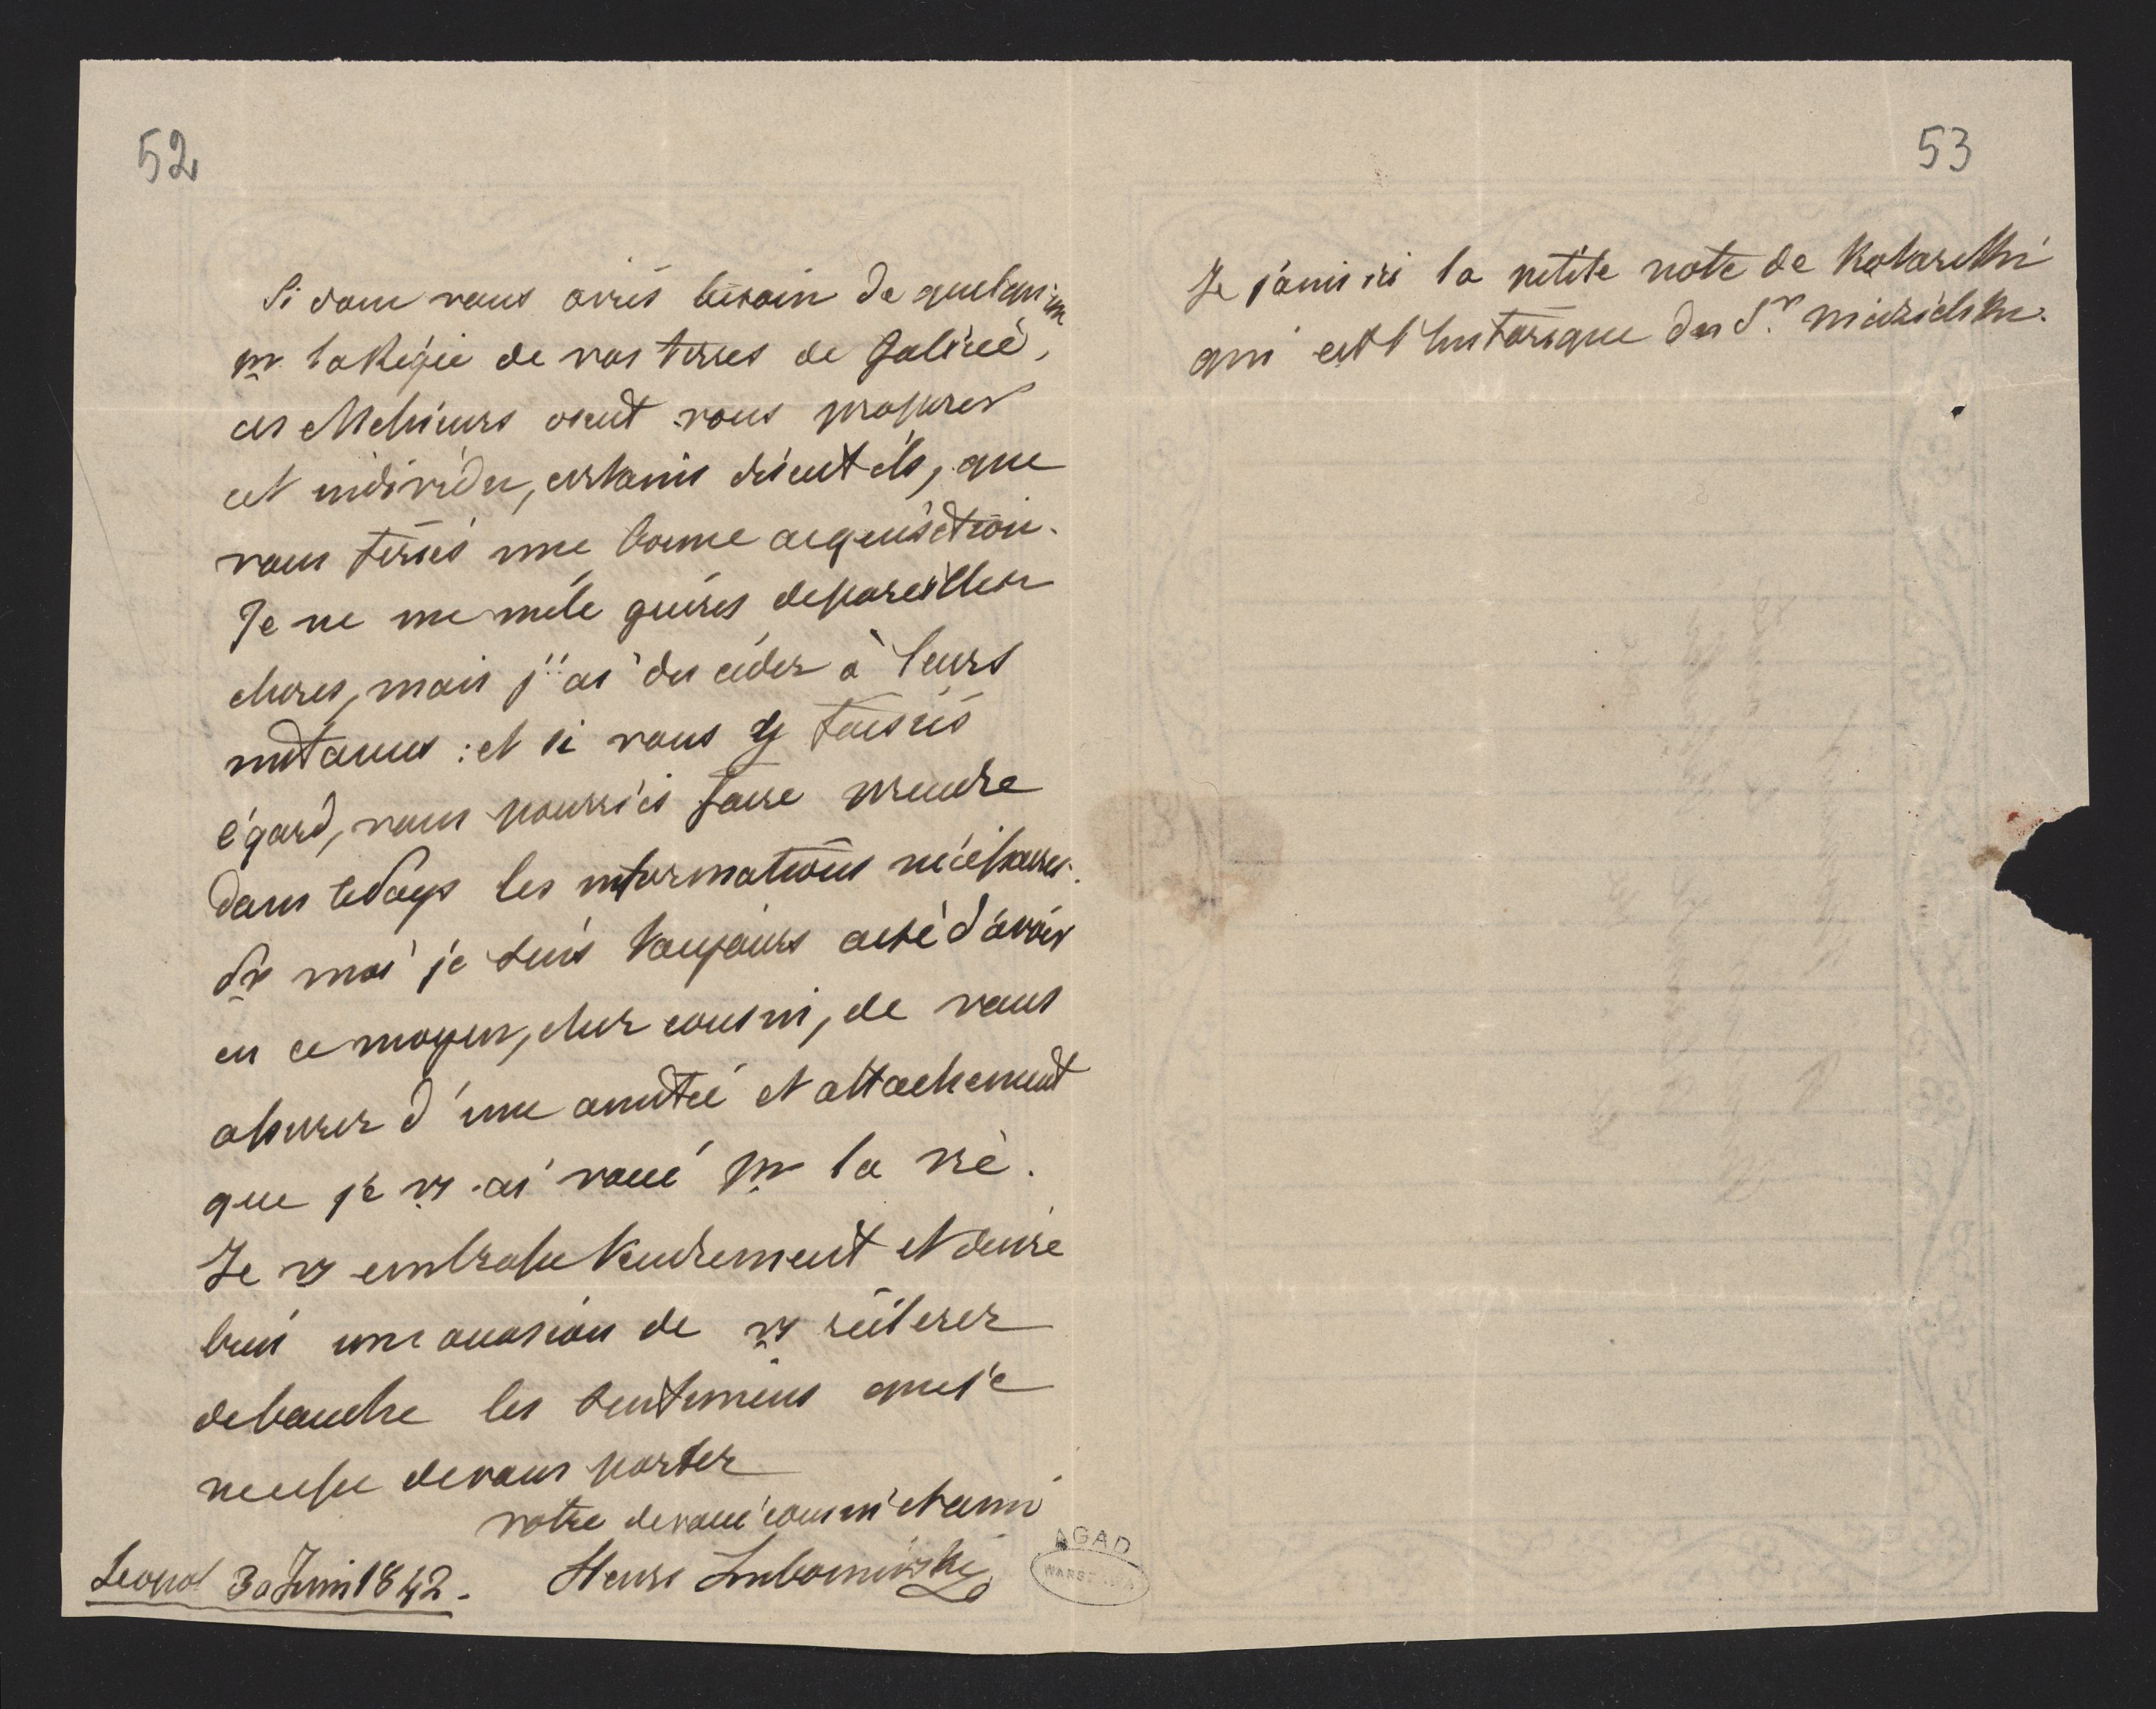 52
Si donc vous aviés besoin de quelqu'un
pr la Régie de vos terres de Galicie,
ces Messieurs osent vous proposer
cet individu, certains disent ils, que
vous feriés une bonne acquisition.
Je ne me mêle guéres de pareilles
choses, mais j'ai du céder à leurs
instances : et si vous y faisiés
égard, vous pourriés faire prendre
dans le Pays les informations nécéssaires.
Pr moi je suis toujours aise d'avoir
en ce moyen, cher cousin, de vous
assurer d'une amitié et attachement
que je vs ai voué pr la vie.
Je vs embrasse tendrement et désire
bien une occasion de vs réiterer
de bouche les sentimens que je
ne cesse de vous porter
votre devoué cousin et ami
Henri Lubomirski
Leopol 30 Juin 1842.
AGAD
WARSZAWA
53
Je joins ici la petite note de
qui est l'historique du Sr.